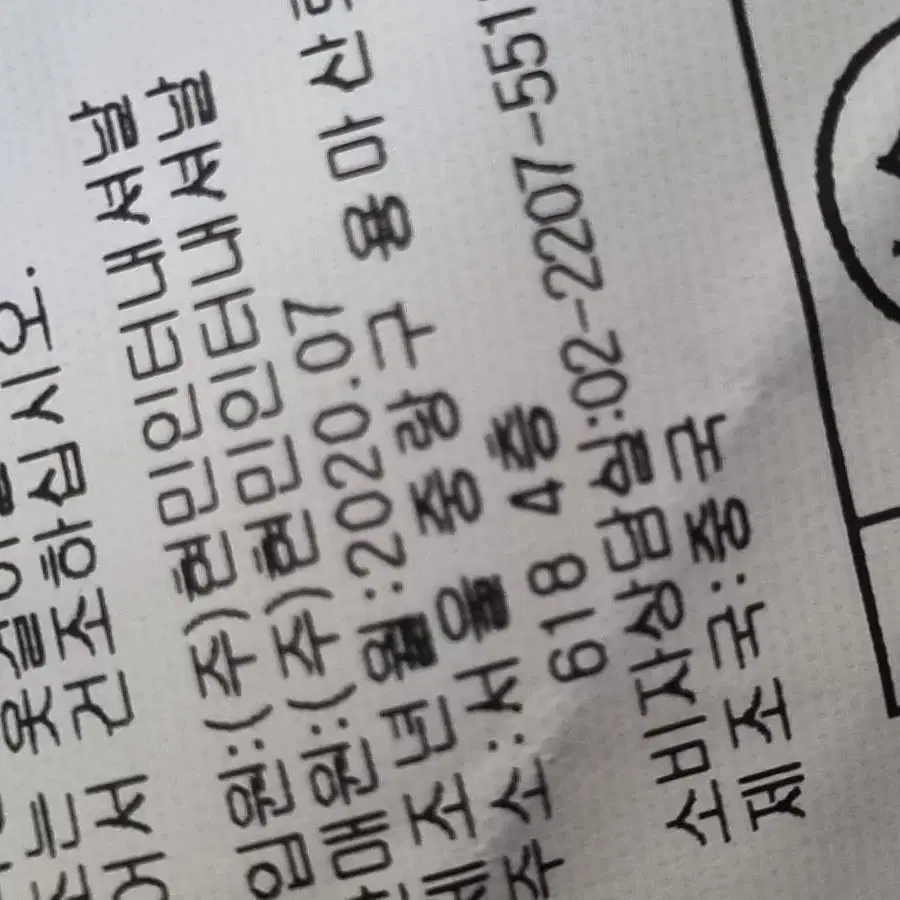 는 옷
어서 건조하십시오.
입원:(주)현민인터내셔날
매원:(주)현민인터내셔날
제조년월:2020.07
주소:서울 중랑구 용마산
618 4층
소비자상담실:02-2207-551
제조국:중국